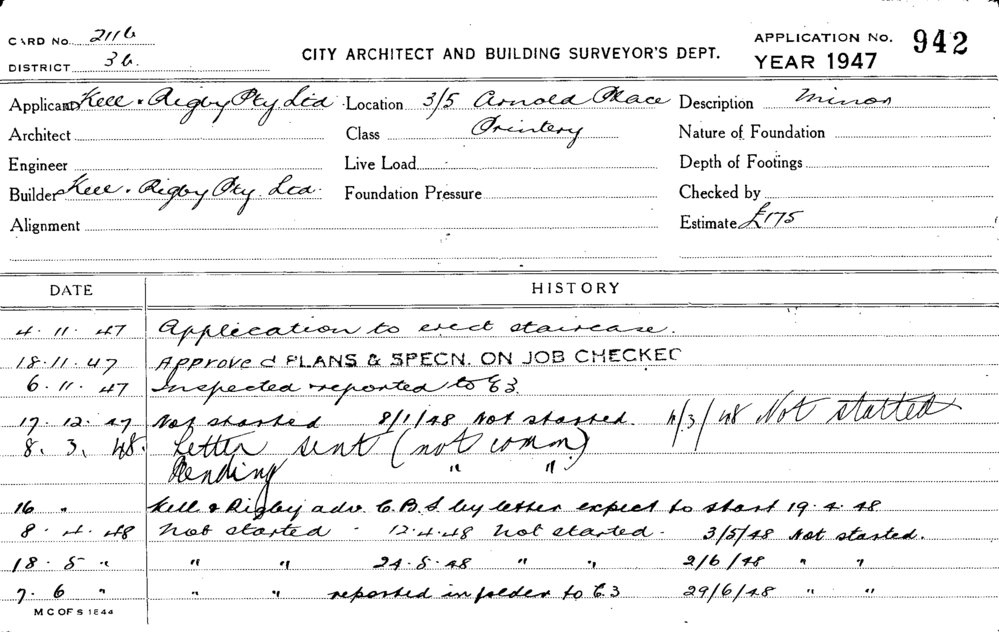 CARD No. 2116
DISTRICT 36.
CITY ARCHITECT AND BUILDING SURVEYOR'S DEPT.
APPLICATION No. 942
YEAR 1947
Applicant Kell & Rigby Pty Ltd Location 3/5 Arnold Place Description Minor
Architect Class Printery Nature of Foundation
Engineer Live Load Depth of Footings
Builder Kell & Rigby Pty. Ltd. Foundation Pressure Checked by
Alignment Estimate £175
DATE HISTORY
4.11.47 Application to erect staircase.
18.11.47 Approved PLANS & SPECN. ON JOB CHECKED
6.11.47 Inspected & reported to E3.
17.12.47 Not started 8/1/48 Not started. /3/48 Not started
8.3.48. Letter sent (not comm)
Pending " "
16 " Kell & Rigby adv. C.B.S. by letter expect to start 19.4.48
8.4.48 Not started - 12.4.48 Not started. 3/5/48 Not started.
18.5 " " " 24.5.48 " " 2/6/48 " "
7.6 " " " reported in folder to E3 29/6/48 " "
M C OF S 1844